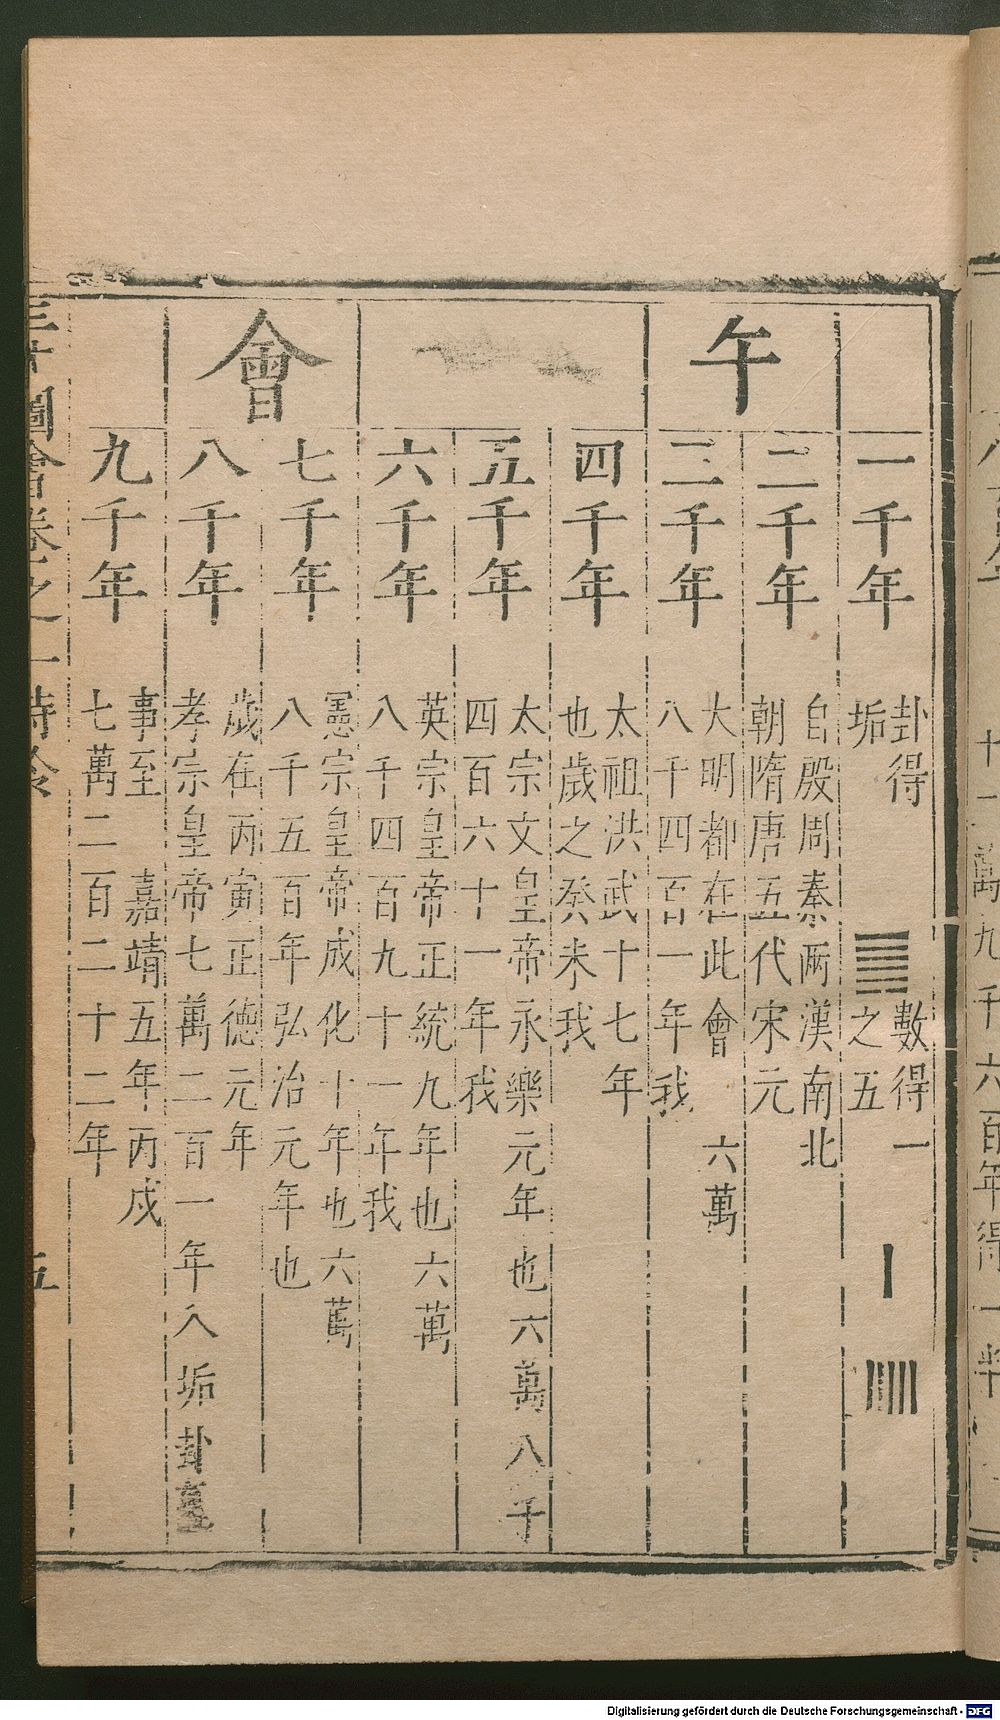 午
會
一千年
卦得
姤
數得一
之五
二千年
自殷周秦兩漢南北
朝隋唐五代宋元
三千年
大明都在此會 六萬
八千四百一年我
四千年
太祖洪武十七年
也歲之癸未我
五千年
太宗文皇帝永樂元年也六萬八千
四百六十一年我
六千年
英宗皇帝正統九年也六萬
八千四百九十一年我
七千年
憲宗皇帝成化十年也六萬
八千五百年弘治元年也
八千年
歲在丙寅正德元年
孝宗皇帝七萬二百一年入姤卦
九千年
事至 嘉靖五年丙戌
七萬二百二十二年
圖會卷之一時令
五
十一萬九千六百年得一
Digitalisierung gefördert durch die Deutsche Forschungsgemeinschaft - DFG